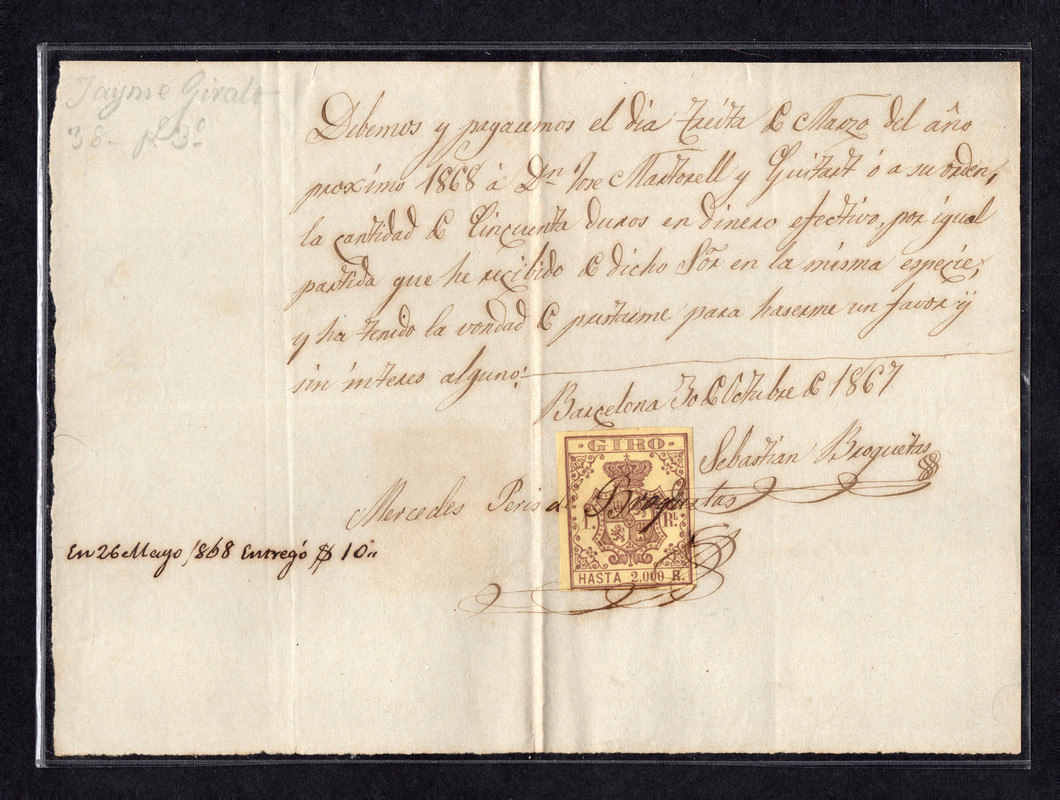 Jayme Giralt
38 - pl 3º
Debemos y pagaremos el dia treita de Marzo del año
proximo 1868 á Dn Jose Martorell y Guitart ó a su orden,
la cantidad de Cincuenta duros en dinero efectivo, por igual
partida que he recibido de dicho Sor en la misma especie,
y ha tenido la vondad de prestarme para haserme un favor y
sin interes alguno:
Barcelona 30 de Octubre de 1867
Sebastián Broquetas
Mercedes Peris de Broquetas
En 26 Mayo 1868 Entregó $ 10"
· GIRO ·
1. Rl.
HASTA 2.000 R.